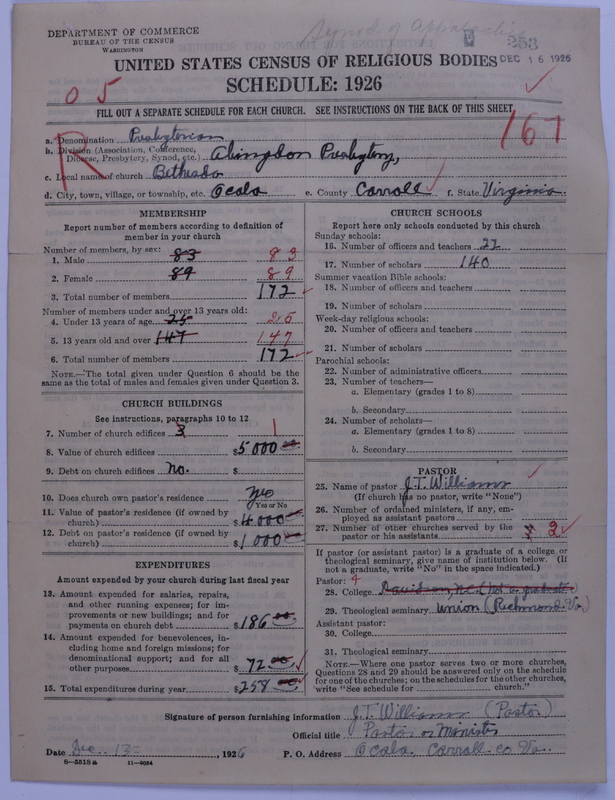 Synod of Appalachia
DEPARTMENT OF COMMERCE
BUREAU OF THE CENSUS
WASHINGTON
253
DEC 16 1926
UNITED STATES CENSUS OF RELIGIOUS BODIES
SCHEDULE: 1926
0 5
FILL OUT A SEPARATE SCHEDULE FOR EACH CHURCH. SEE INSTRUCTIONS ON THE BACK OF THIS SHEET.
167
R
a. Denomination Presbyterian
b. Division (Association, Conference,
Diocese, Presbytery, Synod, etc.) Abingdon Presbytery,
c. Local name of church Bethesda
d. City, town, village, or township, etc. Ocala e. County Carroll f. State Virginia
MEMBERSHIP
Report number of members according to definition of
member in your church
Number of members, by sex:
1. Male 83 83
2. Female 89 89
3. Total number of members 172
Number of members under and over 13 years old:
4. Under 13 years of age 25 25
5. 13 years old and over 147 147
6. Total number of members 172
NOTE.—The total given under Question 6 should be the
same as the total of males and females given under Question 3.
CHURCH BUILDINGS
See instructions, paragraphs 10 to 12
7. Number of church edifices 3 1
8. Value of church edifices $5000 00
9. Debt on church edifices no. $
10. Does church own pastor's residence yes
Yes or No
11. Value of pastor's residence (if owned by
church) $4000
12. Debt on pastor's residence (if owned by
church) $1000
EXPENDITURES
Amount expended by your church during last fiscal year
13. Amount expended for salaries, repairs,
and other running expenses; for im-
provements or new buildings; and for
payments on church debt $186 00
14. Amount expended for benevolences, in-
cluding home and foreign missions; for
denominational support; and for all
other purposes $72 00
15. Total expenditures during year $258 00
CHURCH SCHOOLS
Report here only schools conducted by this church
Sunday schools:
16. Number of officers and teachers 22
17. Number of scholars 140
Summer vacation Bible schools:
18. Number of officers and teachers
19. Number of scholars
Week-day religious schools:
20. Number of officers and teachers
21. Number of scholars
Parochial schools:
22. Number of administrative officers
23. Number of teachers—
a. Elementary (grades 1 to 8)
b. Secondary
24. Number of scholars—
a. Elementary (grades 1 to 8)
b. Secondary
PASTOR
25. Name of pastor J.T. Williams
(If church has no pastor, write "None")
26. Number of ordained ministers, if any, em-
ployed as assistant pastors
27. Number of other churches served by the
pastor or his assistants 2
If pastor (or assistant pastor) is a graduate of a college or
theological seminary, give name of institution below. (If
not a graduate, write "No" in the space indicated.)
Pastor: 4
28. College Davidson, N.C. (Not a graduate)
29. Theological seminary Union (Richmond, Va.)
Assistant pastor:
30. College
31. Theological seminary
NOTE.—Where one pastor serves two or more churches,
Questions 28 and 29 should be answered only on the schedule
for one of the churches; on the schedules for the other churches,
write "See schedule for church."
Signature of person furnishing information J.T. Williams (Pastor)
Official title Pastor or Minister
Date Dec. 13, 1926 P. O. Address Ocala, Carroll co. Va.
8—5518 a 11—9034